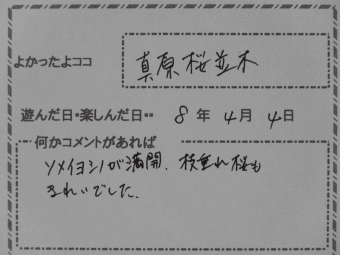 よかったよココ 真原桜並木
遊んだ日・楽しんだ日・・ 8年4月4日
何かコメントがあれば
ソメイヨシノが満開、枝垂れ桜も
きれいでした。